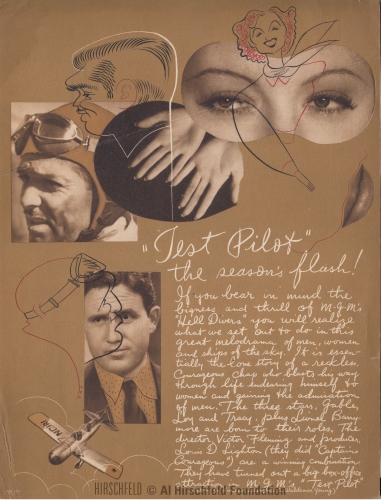 "Test Pilot"
the season's flash!
If you bear in mind the
bigness and thrill of M-G-M's
"Hell Divers" you will realize
what we set out to do in this
great melodrama of men, women
and ships of the sky. It is essen-
tially the love story of a reckless,
courageous ace who blasts his way
through life endearing himself to
women and gaining the admiration
of men. The three stars, Gable,
Loy and Tracy, plus Lionel Barry-
more are born to their roles. The
director Victor Fleming and producer,
Louis D. Lighton (they did "Captains
Courageous") are a winning combination.
They have turned out a big box-office
attraction in M-G-M's "Test Pilot"
HIRSCHFELD © Al Hirschfeld Foundation